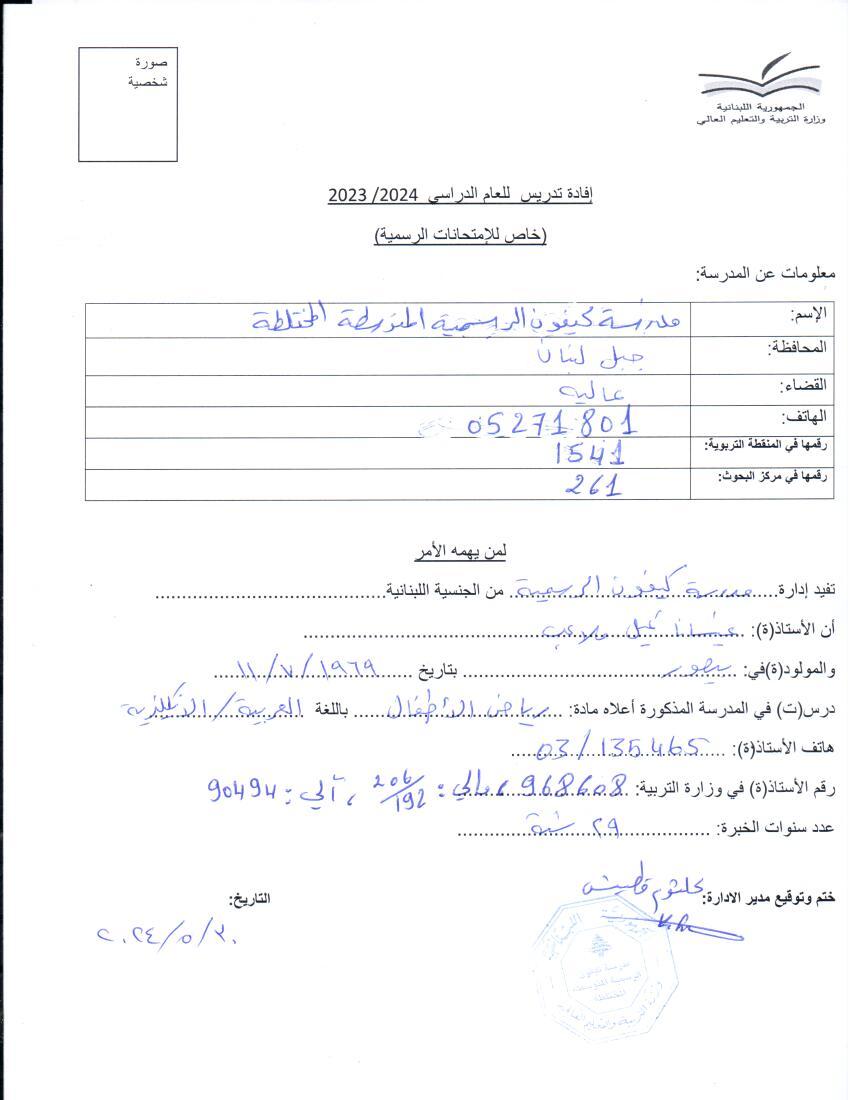 صورة
شخصية
الجمهورية اللبنانية
وزارة التربية والتعليم العالي
إفادة تدريس للعام الدراسي 2023 /2024
(خاص للإمتحانات الرسمية)
معلومات عن المدرسة:
الإسم: مدرسة كيفون الرسمية المتوسطة المختلطة
المحافظة: جبل لبنان
القضاء: عاليه
الهاتف: 05271801
رقمها في المنقطة التربوية: 1541
رقمها في مركز البحوث: 261
لمن يهمه الأمر
تفيد إدارة مدرسة كيفون الرسمية من الجنسية اللبنانية
أن الأستاذ(ة): ملاعب
والمولود(ة)في: بيصور بتاريخ ١١/٧/١٩٦٩
درس(ت) في المدرسة المذكورة أعلاه مادة: رياض الأطفال باللغة العربية/الانكليزية
هاتف الأستاذ(ة): 03/135465
رقم الأستاذ(ة) في وزارة التربية: 968608، مالي: 206/192، آلي: 90494
عدد سنوات الخبرة: ٢٩ سنة
ختم وتوقيع مدير الادارة: كلثوم
التاريخ:
٢٠٢٤/٥/٣٠
الجمهورية اللبنانية
مدرسة كيفون
الرسمية المتوسطة
المختلطة
وزارة التربية والتعليم العالي